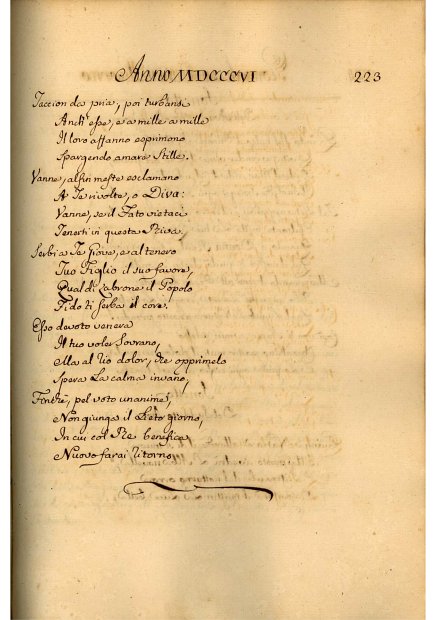 Anno MDCCCVI
223
Taccion da pria, poi turbansi
Anch' esse, e a mille a mille
Il loro affanno esprimono
Spargendo amare Stille.
Vanne, alfin meste esclamano
A Te rivolte, o Diva:
Vanne, se il Fato vietaci
Tenerti in questa Riva.
Serbi a Te Giove, e al tenero
Tuo Figlio il suo favore,
Qual di Labrone il Popolo
Fido ti serba il core.
Esso devoto venera
Il tuo voler Sovrano,
Ma al rio dolor, che opprimelo
Spera La calma invano,
Finchè, pel voto unanime,
Non giunga il Lieto giorno,
In cui col Piè benefico
Nuovo farai ritorno.